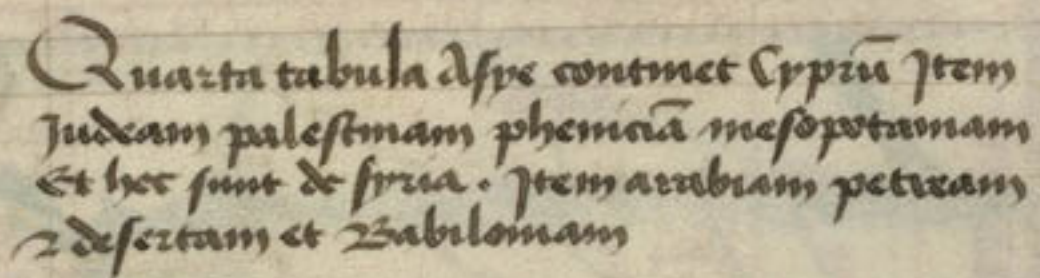 Quarta tabula Asye continet Cyprū Item
Iudeam palestinam pheniciā mesopotamiam
Et hec sunt de syria . Item arabiam petream
⁊ desertam et Babiloniam